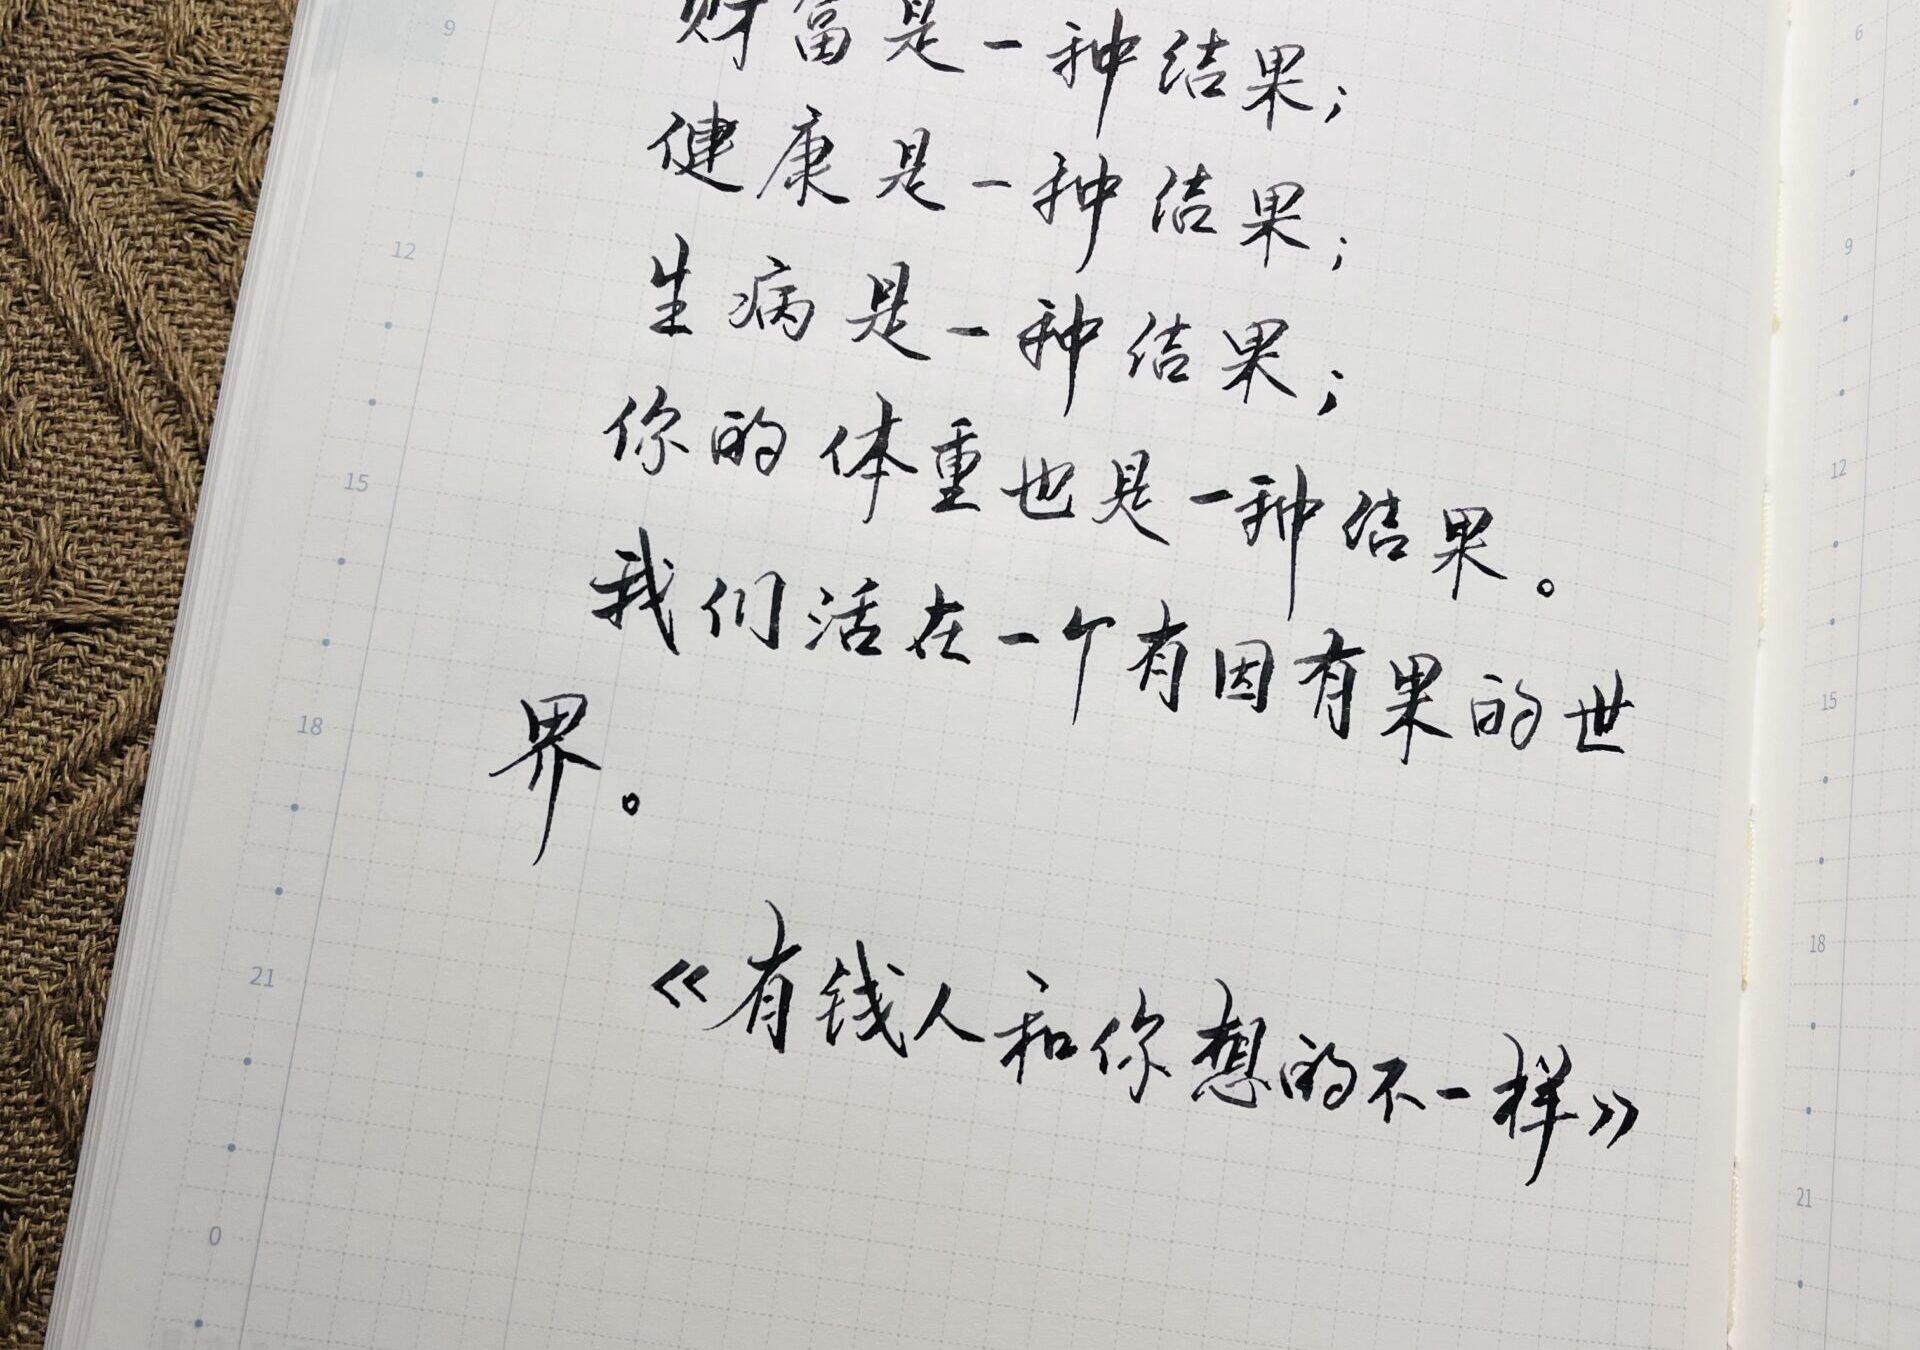 9
财富是一种结果；
健康是一种结果；
12
生病是一种结果；
你的体重也是一种结果。
15
我们活在一个有因有果的世
18
界。
21
《有钱人和你想的不一样》
0
6
9
12
15
18
21